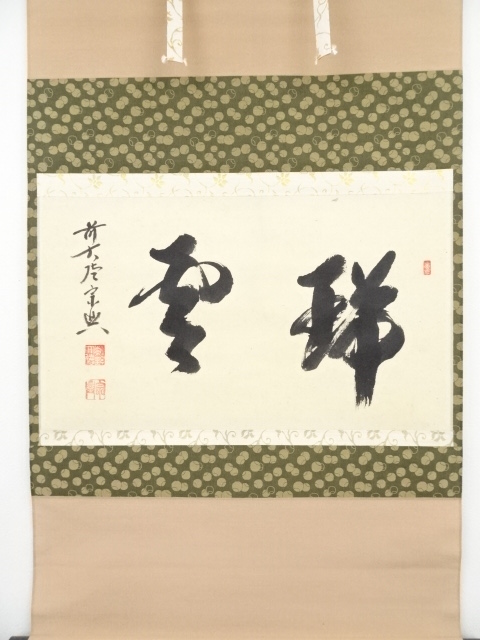 祥雲
前大徳宗興